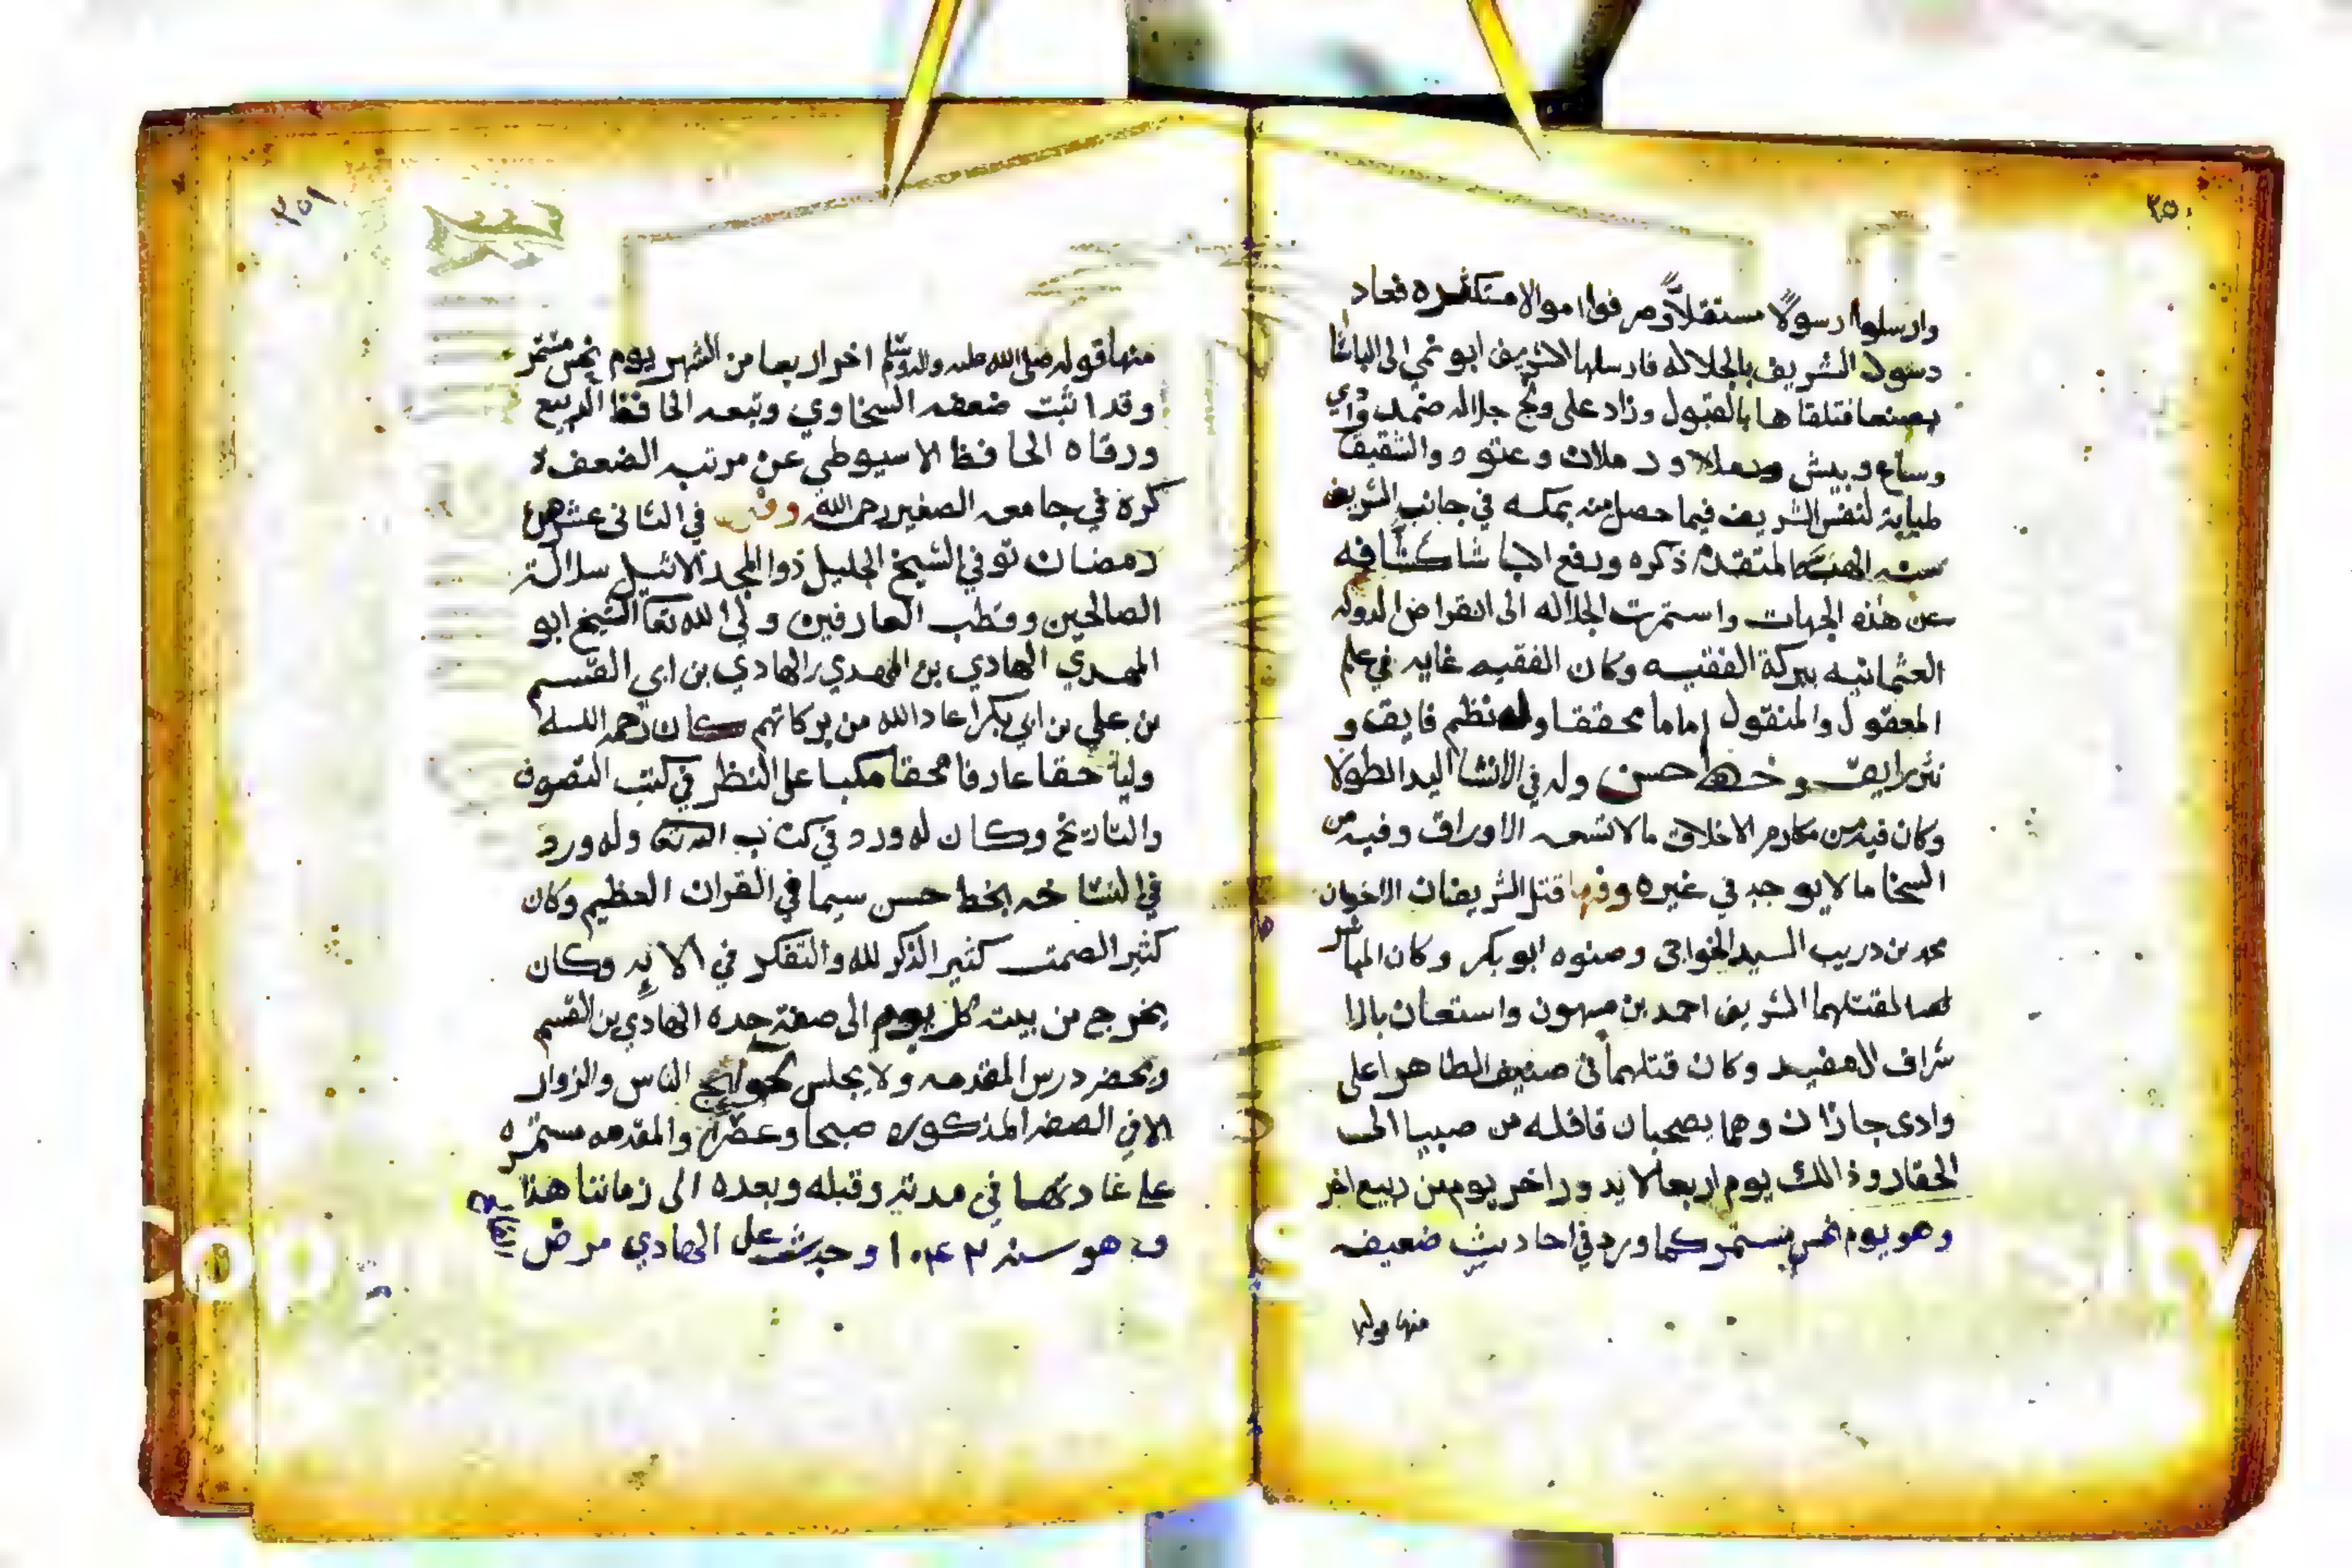 ٢٥٠
وارسلوا رسولًا مستقلاً وصرفوا اموالا مستكثره فعاد
رسول الشريف بالجلاله فارسلها الشريف ابو نمي الى الباشا
بصنعا فتلقاها بالقبول وزاد على ونج جلاله ضمد وادي
وساع وبيش ورملان وعتود والشقيق
لنفس الشريف فيما حصل من يمكسه في جانب الشريف
المتقدم ذكره ورفع الباشا كشافه
عن هذه الجهات واستمرت الجلاله الى انقراض الدوله
العثمانيه ببركة الفقيه وكان الفقيه غايه في علم
المعقول والمنقول اماما محققا وله نظم فايق و
نثر رايق وخط حسن وله في الانشا اليد الطولا
وكان فيه من مكارم الاخلاق مالا تسعه الاوراق وفيه من
السخا ما لا يوجد في غيره وفيها قتل الشريفان الاخوان
محمد بن دريب السيد الخواجى وصنوه ابو بكر وكان المباشر
لقتلهما الشريف احمد بن ميهون واستعان بالا
شراف وكان قتلهما في الطاهر اعلى
وادى جازان وهما يصحبان قافله من صبيا الى
الحقار وذالك يوم اربعا لا يدور اخر يوم من ربيع اخر
وهو يوم نحس مستمر كما ورد في احاديث ضعيفه
منها قوله
٢٥١
منها قوله صلى الله عليه واله وسلم اخر اربعا من الشهر يوم نحس مستمر
وقد اثبت ضعفه السخاوي وتبعه الحافظ الديبع
ورقاه الحافظ الاسيوطي عن مرتبه الضعف و
كره في جامعه الصغير رحمه الله وفي في الثانى عشر من
رمضان توفي الشيخ الجليل ذوا المجد الاثيل سلالة
الصالحين وقطب العارفين ولي الله تعا الشيخ ابو
المهدي الهادي بن المهدي الهادي بن ابي القسم
بن علي بن ابي بكر اعاد الله من بركاتهم كان رحمه الله
وليا حقا عارفا محقا مكبا على النظر في كتب التصوف
والتاريخ وكان له ورد في كتاب الله تعا وله ورد
في النساخه بخط حسن سيما في القران العظيم وكان
كثير الصمت كثير الذكر لله والتفكر في الايه وكان
يخرج من بيته كل يوم الى صفة جده الهادي بن القسم
ويحضر درس المقدمه ولا يجلس لحوايج الناس والزوار
الا في الصفه المذكوره صبحا وعصرا والمقدمه مستمره
على عادتها في مدته وقبله وبعده الى زماننا هذا
وهو سنه ١٠٤٣ وحدث على الهادي مرض